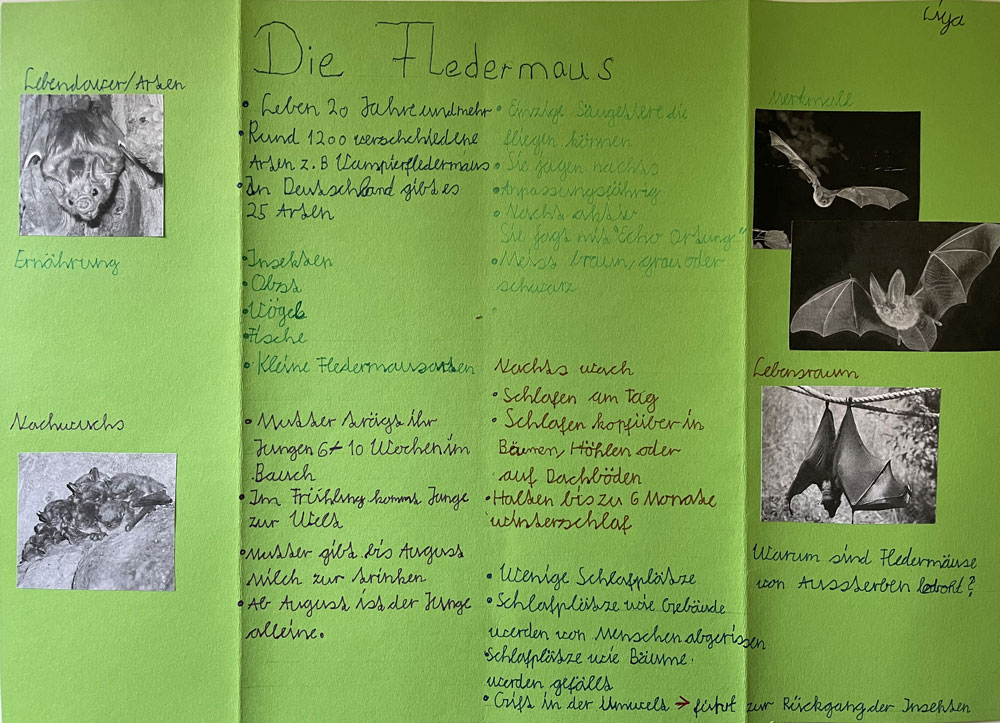 Liya
Die Fledermaus
Lebendauer/Arten
• Leben 20 Jahre und mehr
• Rund 1200 verschchiedene
Arten z. B Vampierfledermaus
• In Deutschland gibt es
25 Arten
Ernährung
• Insekten
• Obst
• Vögel
• Fische
• Kleine Fledermausarten
Nachwuchs
• Mutter trägt ihr
Jungen 6 + 10 Wochen im
Bauch
• Im Frühling kommt Junge
zur Welt
• Mutter gibt bis August
Milch zur trinken
• Ab August ist der Junge
alleine.
Merkmale
• Einzige Säugetiere die
fliegen können
• Sie jagen nachts
• Anpassungsfähig
• Nacht aktiv
Sie jagt mit "Echo Ortung"
• Meist braun, grau oder
schwarz
Lebensraum
Nachts wach
• Schlafen am Tag
• Schlafen kopfüber in
Bäumen, Höhlen oder
auf Dachböden
• Halten bis zu 6 Monate
winterschlaf
Warum sind Fledermäuse
von Aussterben bedroht?
• Wenige Schlafplätze
• Schlafplätze wie Gebäude
werden von Menschen abgerissen
• Schlafplätze wie Bäume
werden gefällt
• Gift in der Umwelt → führt zur Rückgang der Insekten